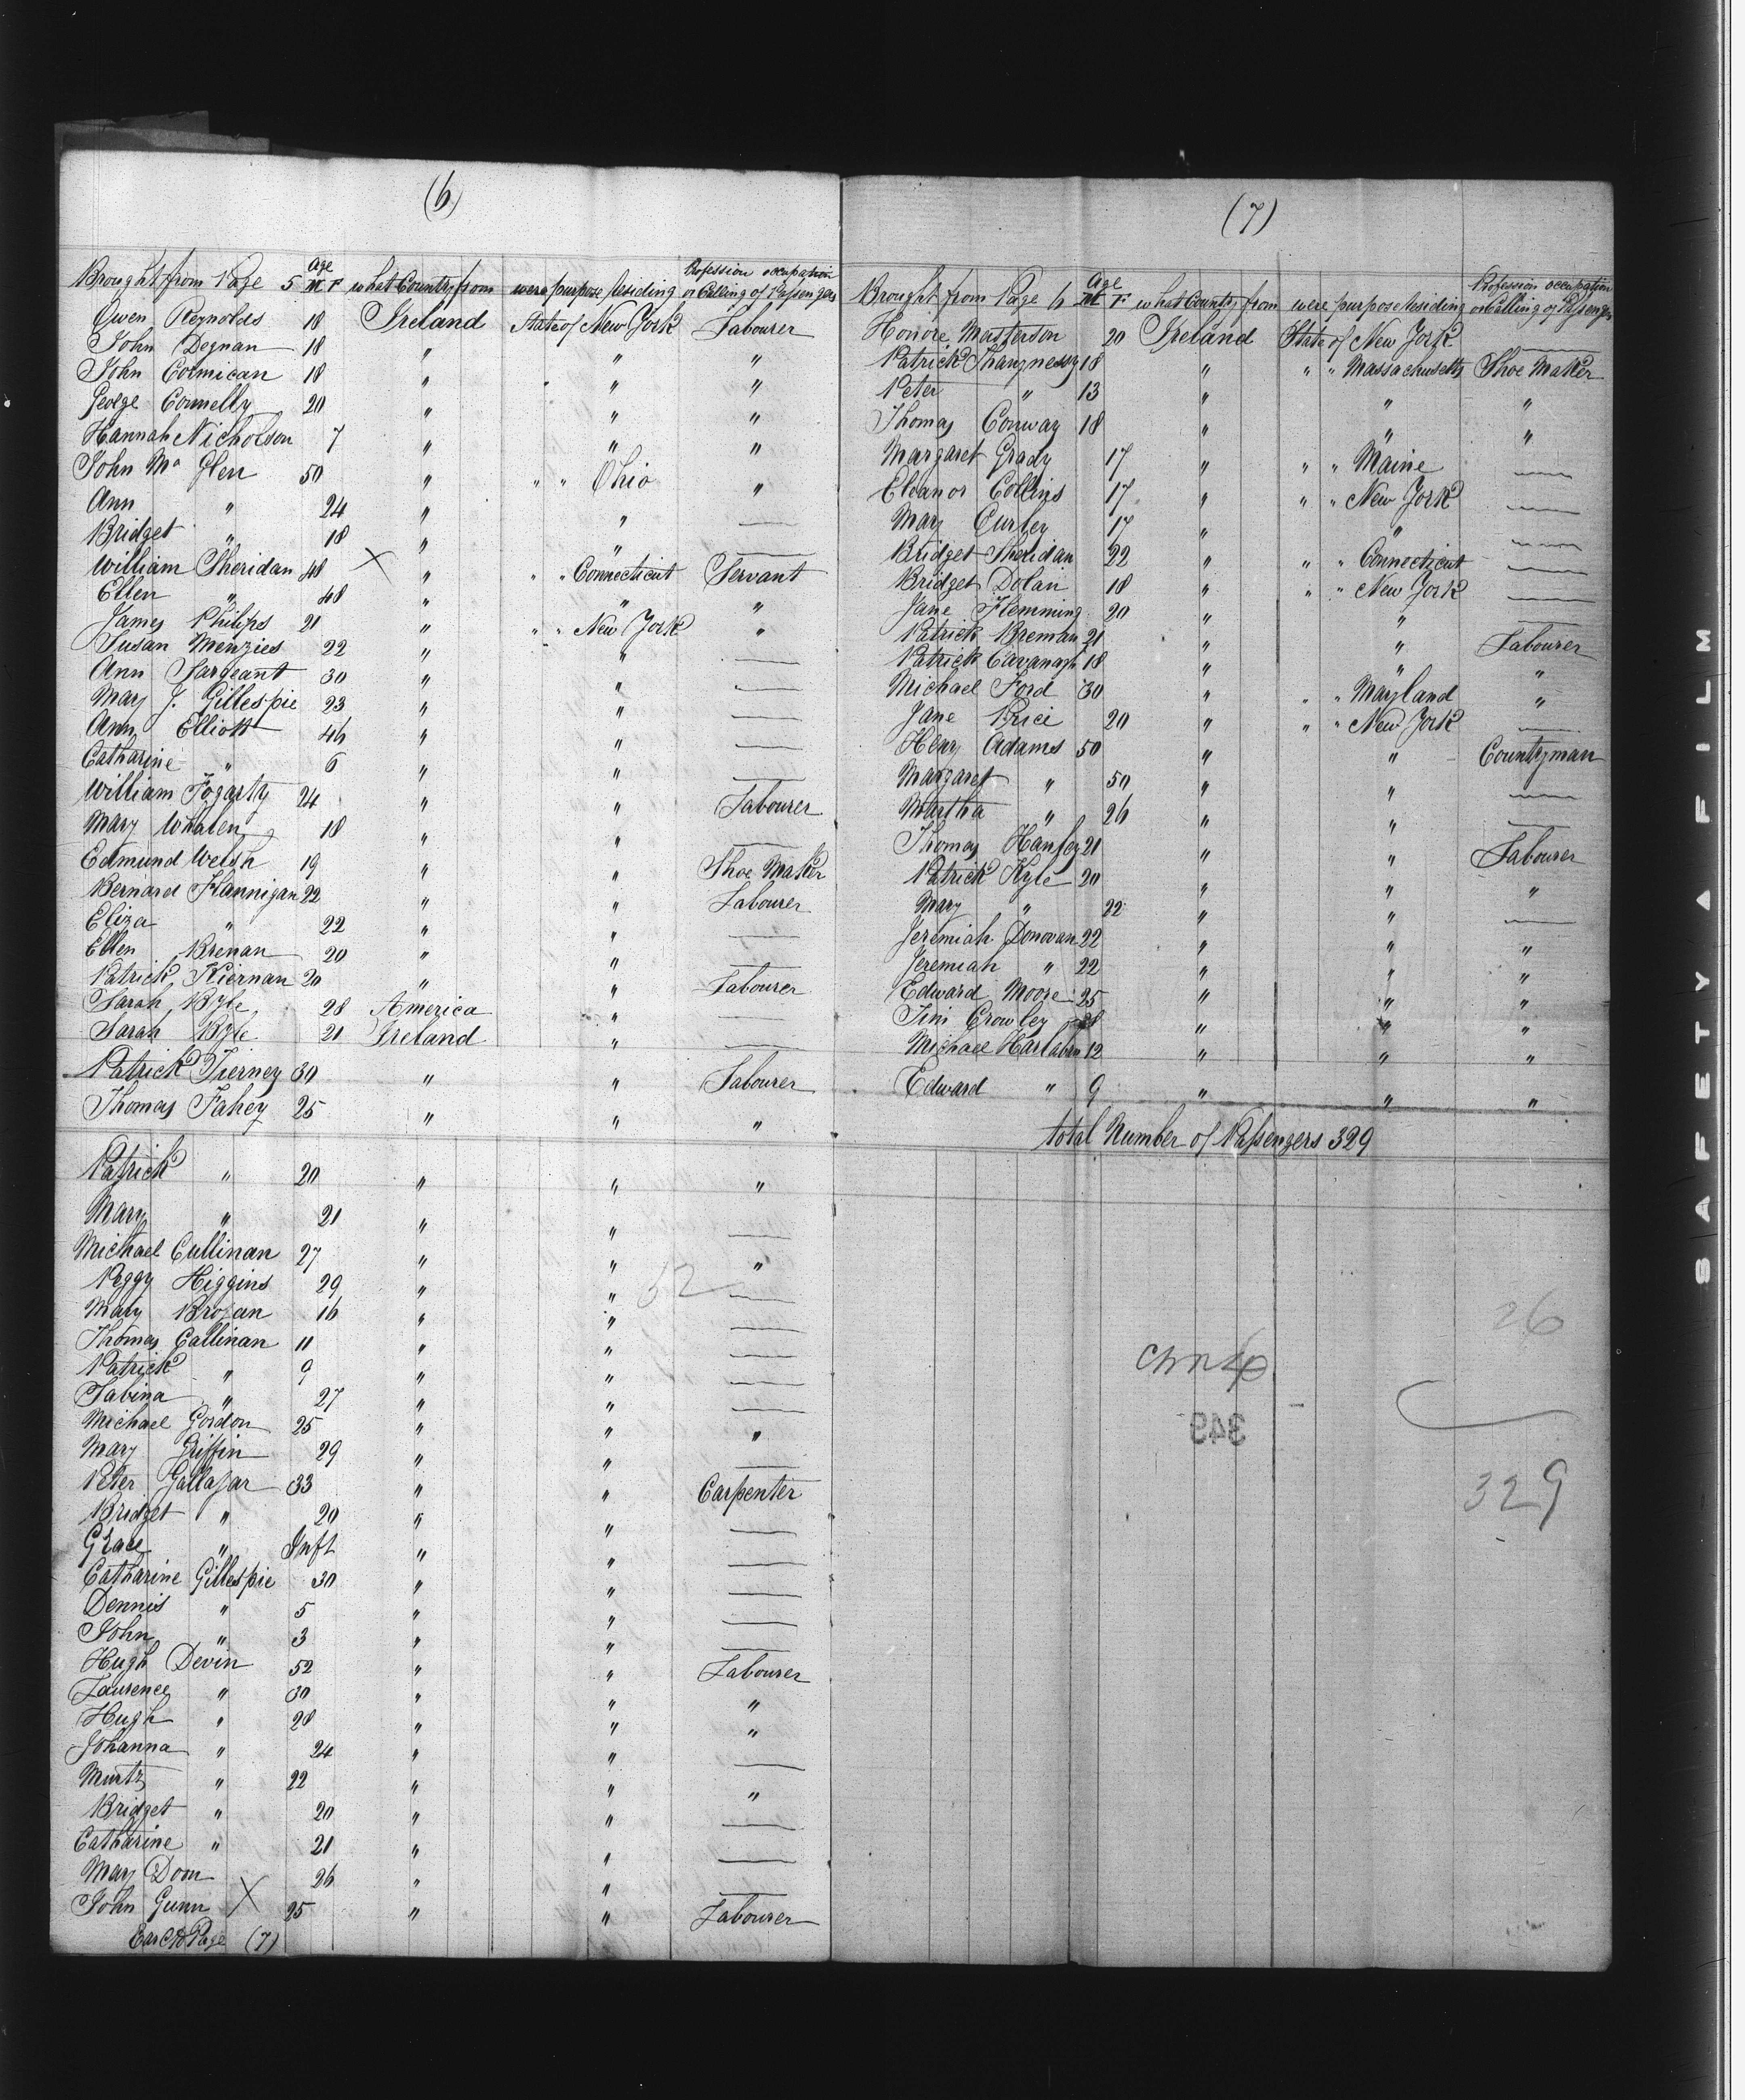 (6)
Age
Profession occupation
Brought from Page 5 M F what Country from were purpose Residing or Calling of Passengers
Owen Reynolds 18 Ireland State of New York Labourer
John Degnan 18 " " "
John Cormican 18 " " "
George Connelly 20 " " "
Hannah Nicholson 7 " " "
John Mc Glen 50 " " " Ohio "
Ann " 24 " " —
Bridget " 18 " " —
William Sheridan 48 X " " " Connecticut Servant
Ellen " 48 " " "
James Philips 21 " " " New York "
Susan Menzies 22 " " —
Ann Sargeant 30 " " —
Mary J. Gillespie 23 " " —
Ann Elliott 46 " " —
Catharine " 6 " " —
William Fogarty 24 " " Labourer
Mary Whalen 18 " " —
Edmund Welsh 19 " " Shoe Maker
Bernard Flannigan 22 " " Labourer
Eliza " 22 " " —
Ellen Brenan 20 " " —
Patrick Kiernan 20 " " Labourer
Sarah Kyle 28 America " —
Sarah Kyle 21 Ireland " —
Patrick Tierney 30 " " Labourer
Thomas Fahey 25 " " "
Patrick " 20 " " "
Mary " 21 " " —
Michael Cullinan 27 " " "
Peggy Higgins 29 " " —
52
Mary Brogan 16 " " —
Thomas Callinan 11 " " —
Patrick " 9 " " —
Sabina " 27 " " —
Michael Gordon 25 " " "
Mary Griffin 29 " " —
Peter Gallagar 33 " " Carpenter
Bridget " 20 " " —
Grace " Inft " " —
Catharine Gillespie 30 " " —
Dennis " 5 " " —
John " 3 " " —
Hugh Devin 52 " " Labourer
Laurence " 30 " " "
Hugh " 28 " " "
Johanna " 24 " " —
Murty " 22 " " "
Bridget " 20 " " —
Catharine " 21 " " —
Mary Doon 26 " " —
John Gunn X 25 " " Labourer
Page (7)
(7)
Age
Profession occupation
Brought from Page 6 M F what Country from were purpose Residing or Calling of Passengers
Honore Masterson 20 Ireland State of New York —
Patrick Shaugnessy 18 " " " Massachusetts Shoe Maker
Peter " 13 " " "
Thomas Conway 18 " " "
Margaret Grady 17 " " " Maine —
Eleanor Collins 17 " " " New York —
Mary Curley 17 " " —
Bridget Sheridan 22 " " " Connecticut —
Bridget Dolan 18 " " " New York —
Jane Flemming 20 " "
Patrick Brennan 21 " " Labourer
Patrick Cavanagh 18 " " "
Michael Ford 30 " " " Maryland "
Jane Price 20 " " " New York —
Henry Adams 50 " " Countryman
Margaret " 50 " " —
Martha " 26 " " —
Thomas Hanley 21 " " Labourer
Patrick Kyle 20 " " "
Mary " 22 " " —
Jeremiah Donovan 22 " " "
Jeremiah " 22 " " "
Edward Moore 25 " " "
Tim Crowley 28 " " "
Michael 12 " " "
Edward " 9 " " "
total Number of Passengers 329
26
349
329
SAFETY A FILM